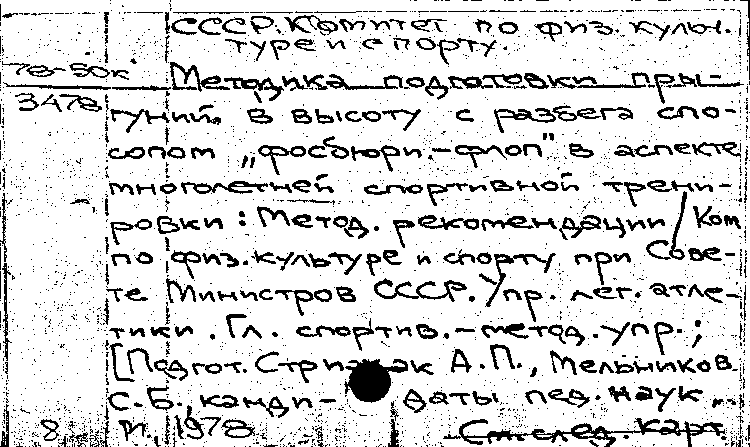 СССР. Комитет по физ. культ.
туре и спорту.
78-50к Методика подготовки пры-
3478 гуний в высоту с разбега спо-
сопом „фосбюри.-флоп" в аспекте
многолетней спортивной трени-
ровки : Метод. рекомендации / Ком
по физ. культуре и спорту при Сове-
те Министров СССР. Упр. лег. атле-
тики. Гл. спортив.-метод. упр.;
[Подгот. Стрижак А.П., Мельников
С.Б., канди- даты пед. наук
8 М., 1978 След. карт.